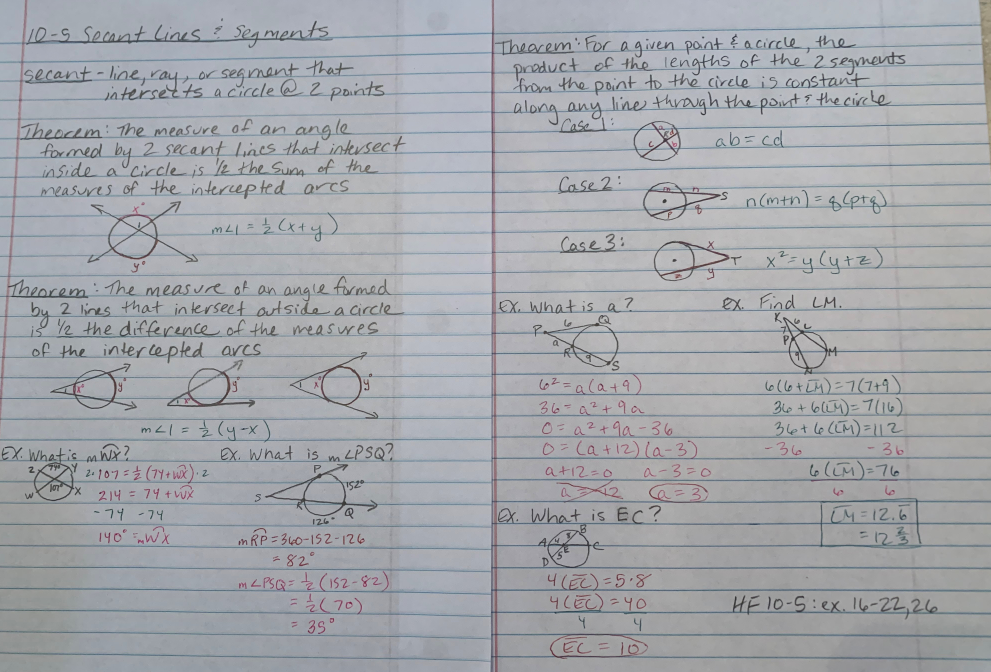 10-5 Secant Lines & Segments
secant - line, ray, or segment that
intersects a circle @ 2 points
Theorem: The measure of an angle
formed by 2 secant lines that intersect
inside a circle is 1/2 the sum of the
measures of the intercepted arcs
x°
1
y°
m∠1 = 1/2 (x+y)
Theorem: The measure of an angle formed
by 2 lines that intersect outside a circle
is 1/2 the difference of the measures
of the intercepted arcs
1 x° y°
1 x° y°
1 x° y°
m∠1 = 1/2 (y-x)
EX. What is mWX?
Z Y
74°
107°
W X
2·107 = 1/2 (74+WX)·2
214 = 74 + WX
-74 -74
140° = mWX
EX. What is m∠PSQ?
P
152°
S
R Q
126°
mRP = 360-152-126
= 82°
m∠PSQ = 1/2 (152-82)
= 1/2 (70)
= 35°
Theorem: For a given point & a circle, the
product of the lengths of the 2 segments
from the point to the circle is constant
along any line through the point & the circle
Case 1:
a d
c b
ab = cd
Case 2:
m n S
p q
n(m+n) = q(p+q)
Case 3:
x
T
z y
x² = y(y+z)
EX. What is a?
P 6 Q
a
R 9
S
6² = a(a+9)
36 = a² + 9a
0 = a² + 9a - 36
0 = (a+12)(a-3)
a+12=0 a-3=0
a = -12 a = 3
EX. Find LM.
K 6 L
7
P M
9
N
6(6+LM) = 7(7+9)
36 + 6(LM) = 7(16)
36 + 6(LM) = 112
-36 -36
6(LM) = 76
6 6
LM = 12.6
= 12 2/3
EX. What is EC?
B
A 4 8 C
E
D 5
4(EC) = 5·8
4(EC) = 40
4 4
EC = 10
HF 10-5: ex. 16-22, 26